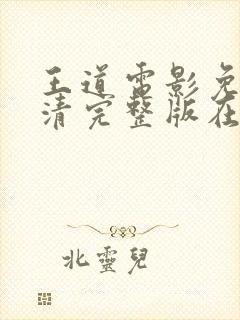 王道电影免
清完整版在
北靈兒